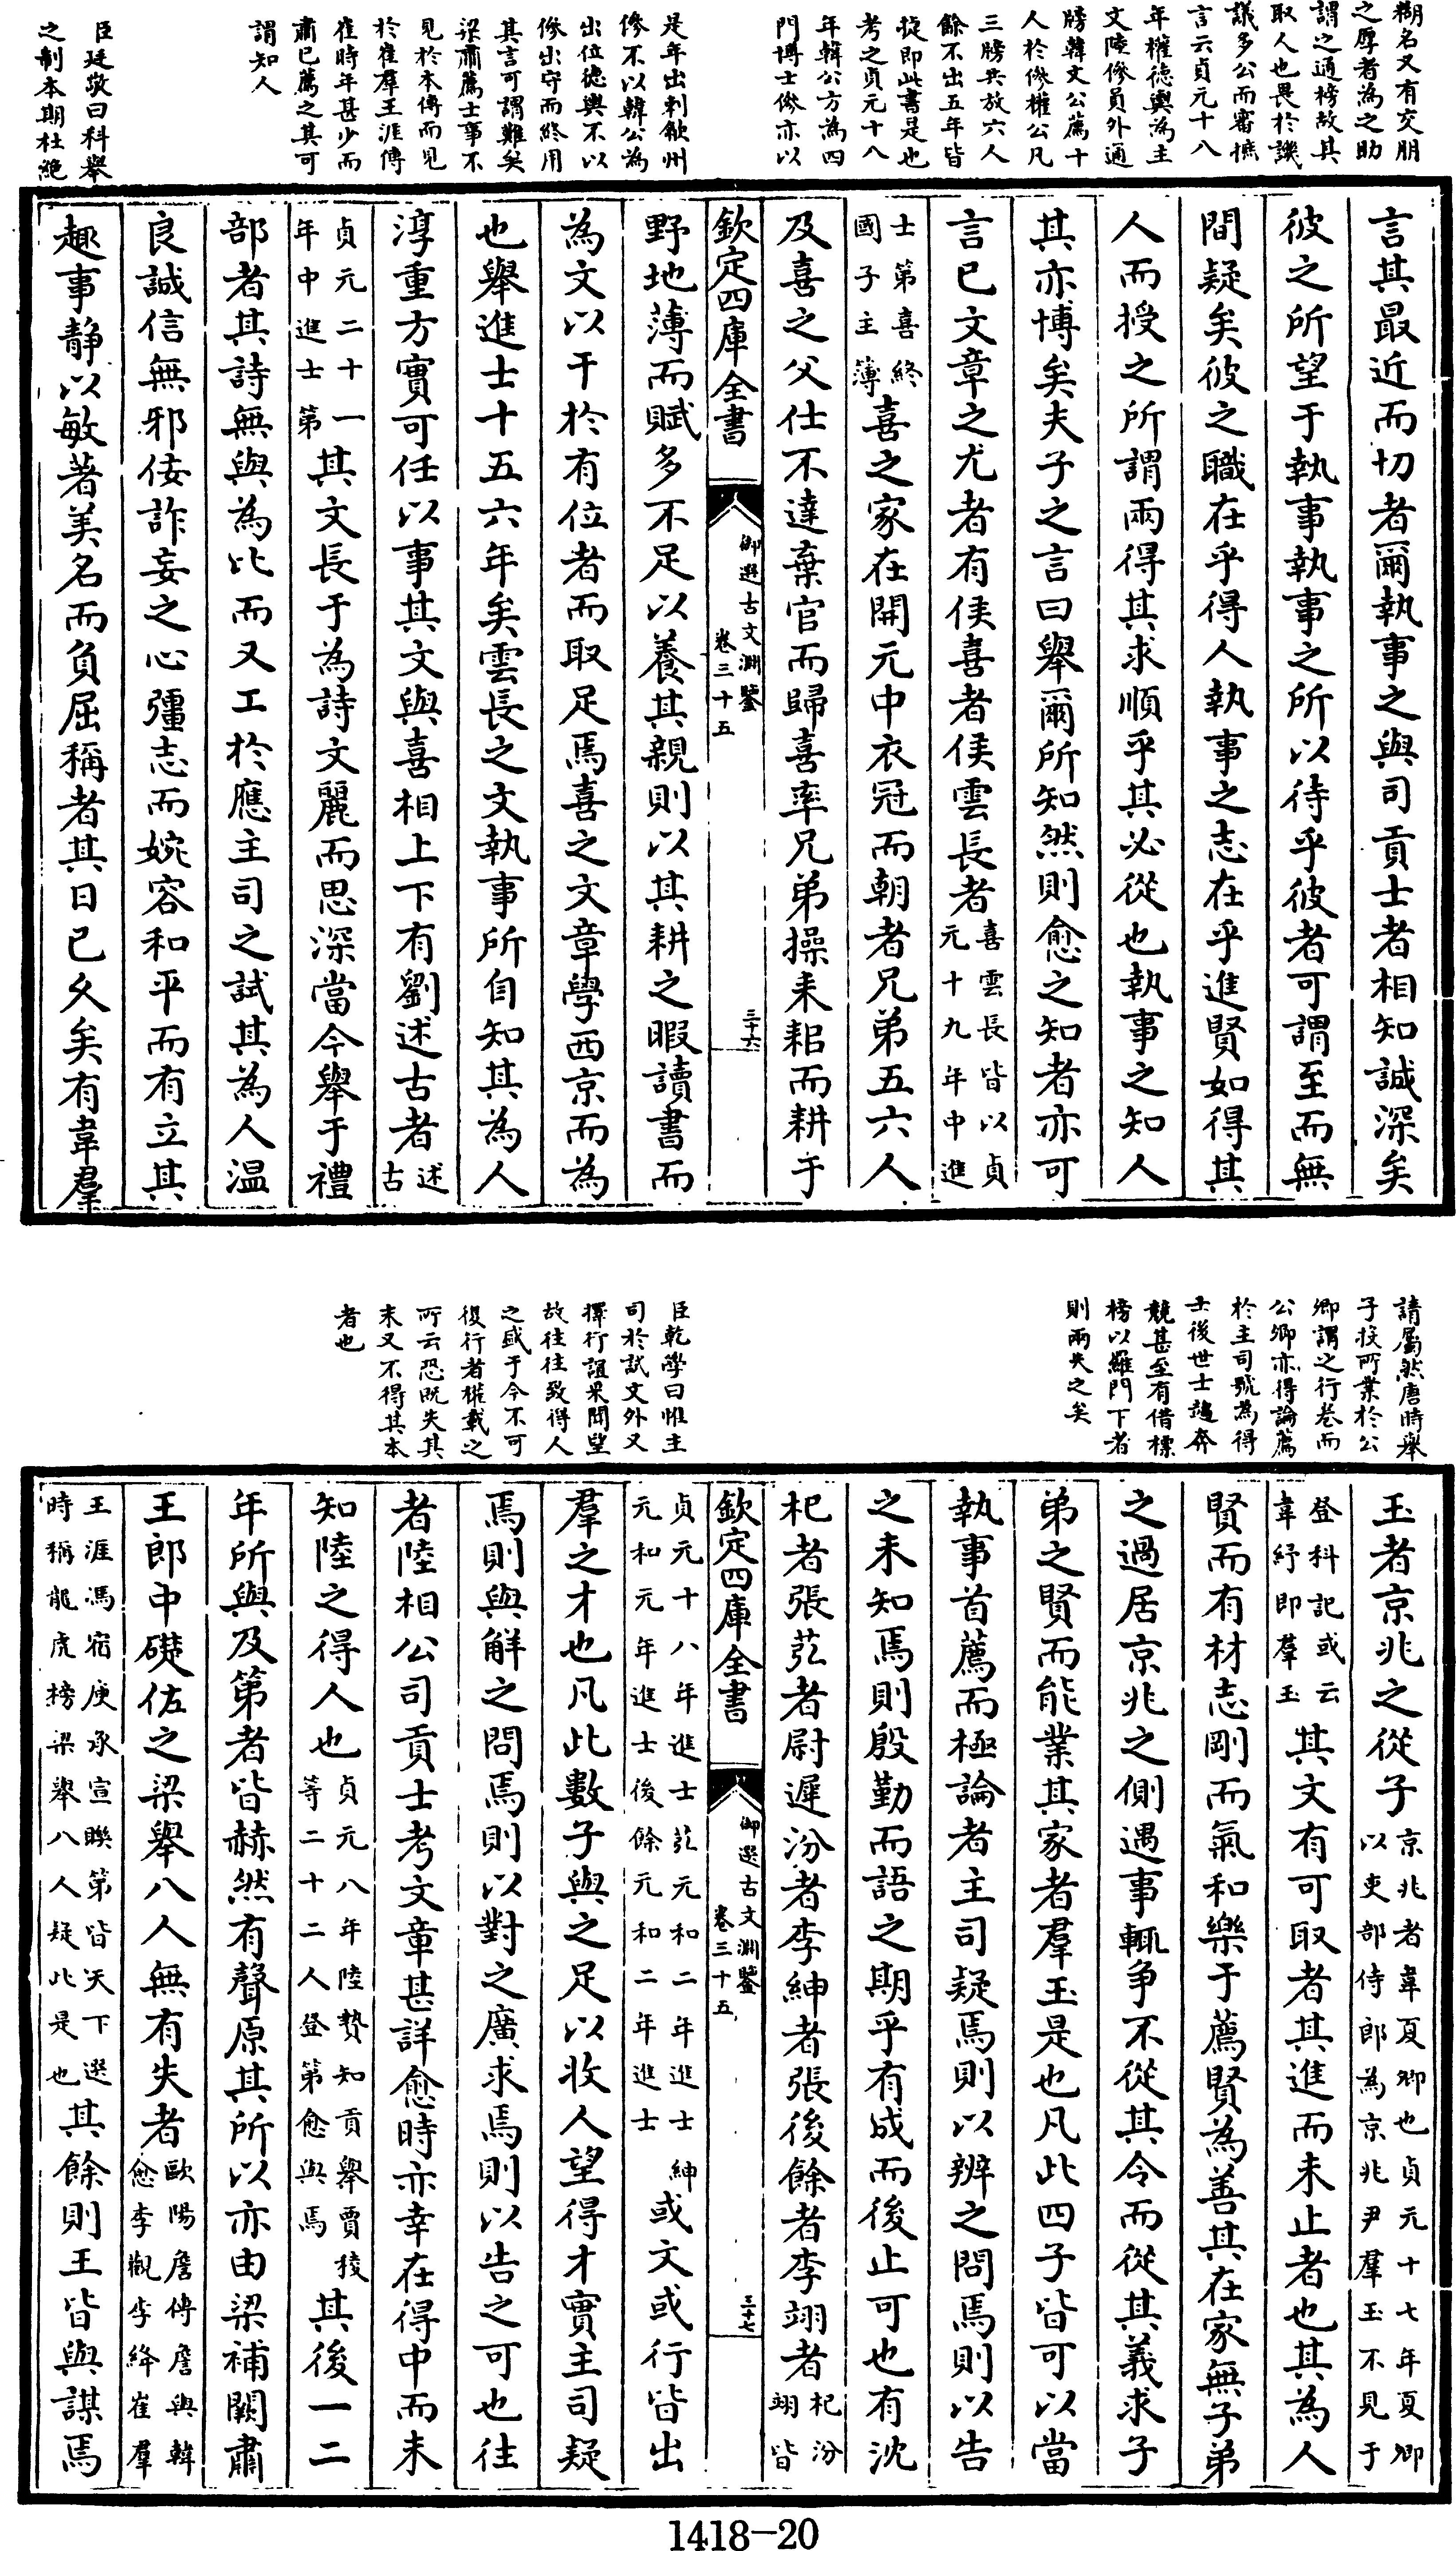 糊名又有交朋
之厚者為之助
謂之通榜故其
取人也畏於譏
議多公而審摭
言云貞元十八
年權德輿為主
文陸傪員外通
牓韓文公薦十
人於傪權公凡
三牓共放六人
餘不出五年皆
捷即此書是也
考之貞元十八
年韓公方為四
門博士傪亦以
是年出刺歙州
傪不以韓公為
出位德輿不以
傪出守而終用
其言可謂難矣
梁肅薦士事不
見於本傳而見
於崔羣王涯傳
崔時年甚少而
肅已薦之其可
謂知人
臣廷敬曰科舉
之制本期杜絶
言其最近而切者爾執事之與司貢士者相知誠深矣
彼之所望于執事執事之所以待乎彼者可謂至而無
間疑矣彼之職在乎得人執事之志在乎進賢如得其
人而授之所謂兩得其求順乎其必從也執事之知人
其亦博矣夫子之言曰舉爾所知然則愈之知者亦可
言已文章之尤者有侯喜者侯雲長者喜雲長皆以貞元十九年中進
士第喜終國子主薄喜之家在開元中衣冠而朝者兄弟五六人
及喜之父仕不達棄官而歸喜率兄弟操耒耜而耕于
欽定四庫全書 御選古文淵鑒 卷三十五 三十六
野地薄而賦多不足以養其親則以其耕之暇讀書而
為文以干於有位者而取足焉喜之文章學西京而為
也舉進士十五六年矣雲長之文執事所自知其為人
淳重方實可任以事其文與喜相上下有劉述古者述古
貞元二十一年中進士第其文長于為詩文麗而思深當今舉于禮
部者其詩無與為比而又工於應主司之試其為人温
良誠信無邪佞詐妄之心彊志而婉容和平而有立其
趣事静以敏著美名而負屈稱者其日已久矣有韋羣
請屬然唐時舉
子投所業於公
卿謂之行卷而
公卿亦得論薦
於主司號為得
士後世士趨奔
競甚至有借標
榜以羅門下者
則兩失之矣
臣乾學曰惟主
司於試文外又
擇行誼采聞望
故往往致得人
之盛于今不可
復行者權載之
所云恐既失其
末又不得其本
者也
玉者京兆之從子京兆者韋夏卿也貞元十七年夏卿以吏部侍郎為京兆尹羣玉不見于
登科記或云韋紓即羣玉其文有可取者其進而未止者也其為人
賢而有材志剛而氣和樂于薦賢為善其在家無子弟
之過居京兆之側遇事輒争不從其令而從其義求子
弟之賢而能業其家者羣玉是也凡此四子皆可以當
執事首薦而極論者主司疑焉則以辨之問焉則以告
之未知焉則殷勤而語之期乎有成而後止可也有沈
杞者張苰者尉遲汾者李紳者張後餘者李翊者杞汾翊皆
欽定四庫全書 御選古文淵鑒 卷三十五 三十七
貞元十八年進士苰元和二年進士紳元和元年進士後餘元和二年進士或文或行皆出
羣之才也凡此數子與之足以收人望得才實主司疑
焉則與解之問焉則以對之廣求焉則以告之可也往
者陸相公司貢士考文章甚詳愈時亦幸在得中而未
知陸之得人也貞元八年陸贄知貢舉賈稜等二十二人登第愈與焉其後一二
年所與及第者皆赫然有聲原其所以亦由梁補闕肅
王郎中礎佐之梁舉八人無有失者歐陽詹傳詹與韓愈李觀李絳崔羣
王涯馮宿庾承宣聯第皆天下選時稱龍虎榜梁舉八人疑此是也其餘則王皆與謀焉
1418-20